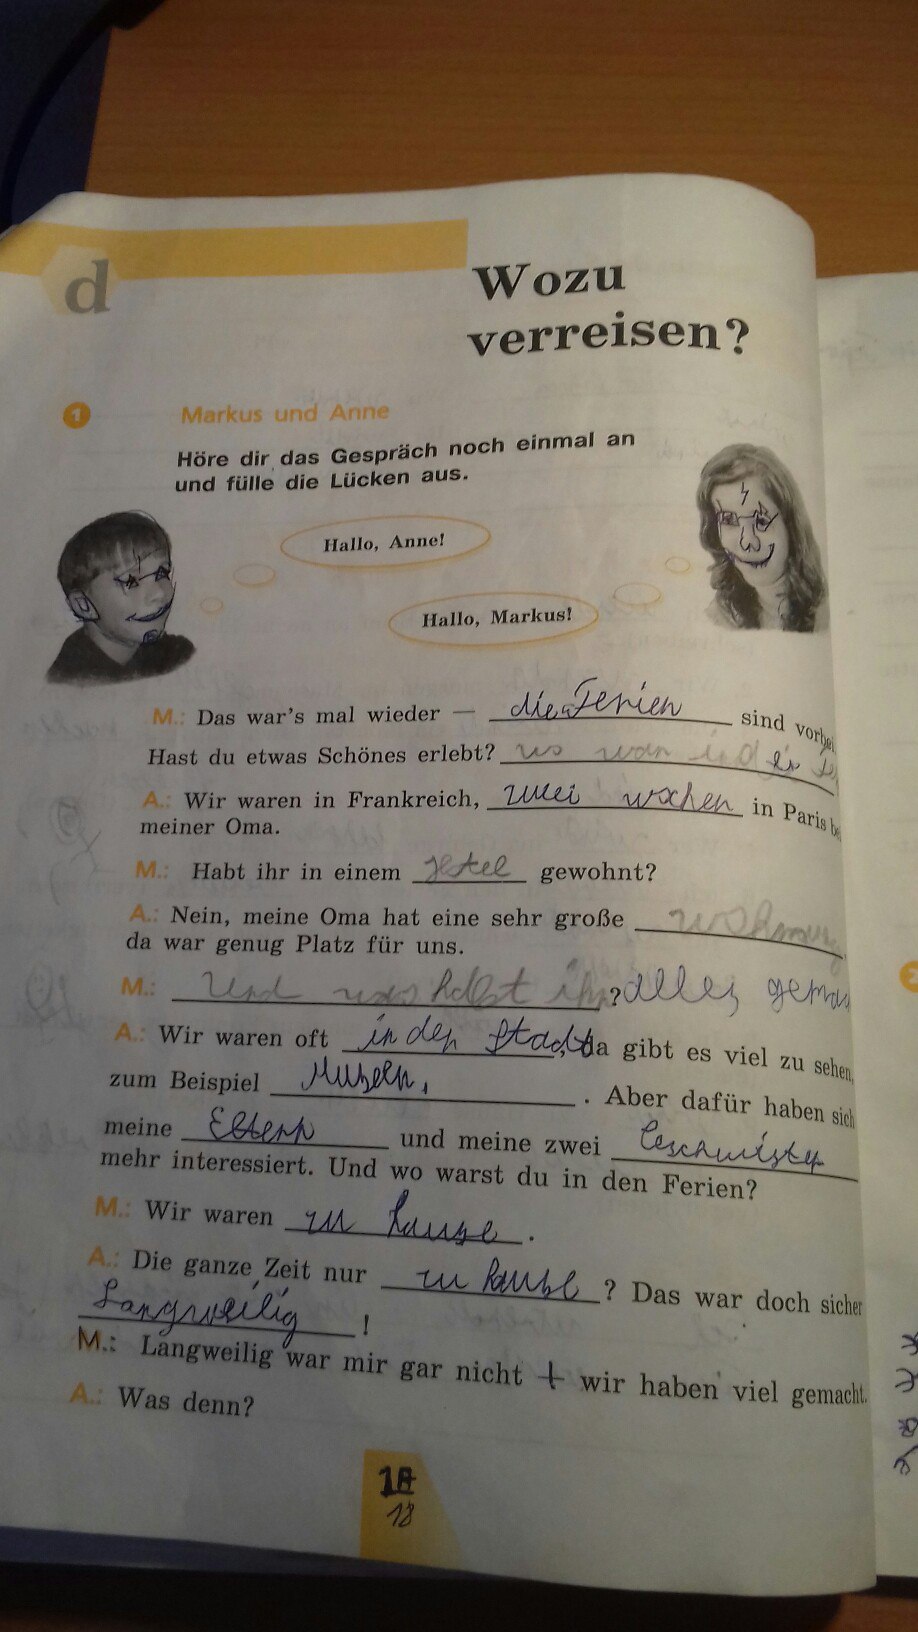 d
Wozu
verreisen?
1 Markus und Anne
Höre dir das Gespräch noch einmal an
und fülle die Lücken aus.
Hallo, Anne!
Hallo, Markus!
M.: Das war's mal wieder — die Ferien sind vorbei.
Hast du etwas Schönes erlebt? wo
A.: Wir waren in Frankreich, zwei wochen in Paris
meiner Oma.
M.: Habt ihr in einem gewohnt?
A.: Nein, meine Oma hat eine sehr große wohnung
da war genug Platz für uns.
M.: Und was habt ihr ? alles
A.: Wir waren oft in der Stadt, da gibt es viel zu sehen,
zum Beispiel . Aber dafür haben sich
meine Eltern und meine zwei Geschwister
mehr interessiert. Und wo warst du in den Ferien?
M.: Wir waren zu hause .
A.: Die ganze Zeit nur zu hause ? Das war doch sicher
Langweilig !
M.: Langweilig war mir gar nicht + wir haben viel gemacht.
A.: Was denn?
18